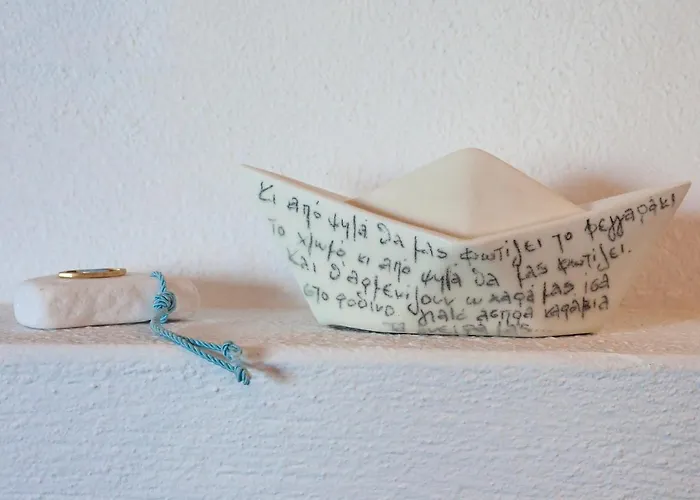 Κι από ψηλά θα μας φωτίζει το φεγγαράκι
το χλωμό κι από ψηλά θα μας φωτίζει.
και θ' αρμενίζουν ω χαρά μας ίσα
στο φθινο γιαλό άσπρα καράβια
τα όνειρά μας...